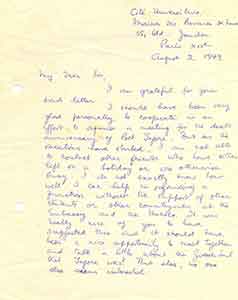 Cité Universitaire
55, Bd. Jourdan
Paris XIVe
August 2, 1949
My dear Sir,
I am grateful for your
kind letter. I should have been very
glad personally to cooperate in an
effort to organise a meeting for the death
anniversary of Poet Tagore. But as the
vacations have started, I am not able
to contact other friends who have either
left on a holiday or are otherwise
busy. I do not exactly know how
well I can help in organising a
function without the support of other
students or other countrymen at the
Embassy and the It was
really nice of you to have
suggested this and it should have
been a nice opportunity to meet together
and talk a little about the
that Tagore was. But alas, no one
else seems interested.